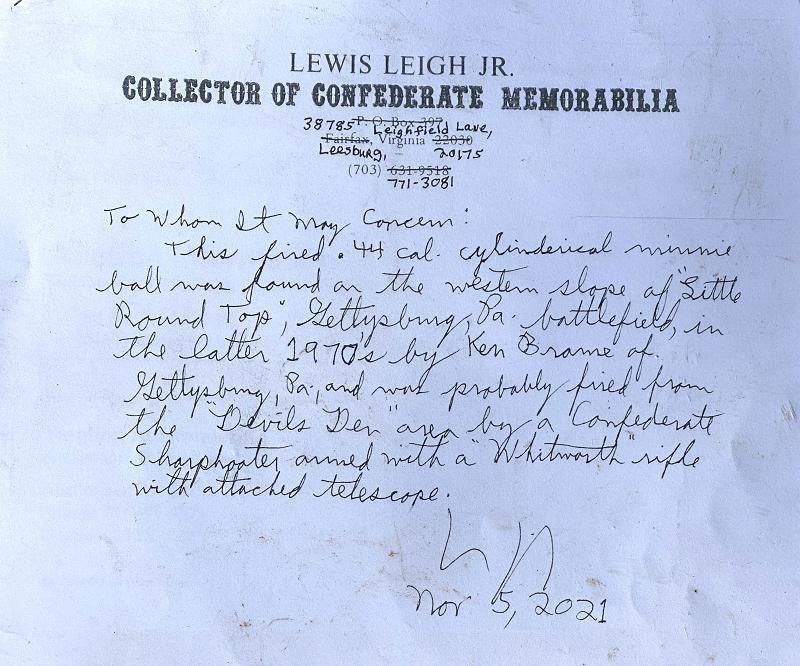 LEWIS LEIGH JR.
COLLECTOR OF CONFEDERATE MEMORABILIA
38785 P. O. Box 397 Leighfield Lane,
Fairfax, Virginia 22030
Leesburg, 20175
(703) 631-9518
771-3081
To Whom It May Concern:
This fired .44 cal. cylinderical minnie
ball was found on the western slope of "Little
Round Top", Gettysburg, Pa. battlefield, in
the latter 1970's by Ken Brame of
Gettysburg, Pa., and was probably fired from
the "Devils Den" area by a Confederate
Sharphooter armed with a "Whitworth" rifle
with attached telescope.
Nov 5, 2021